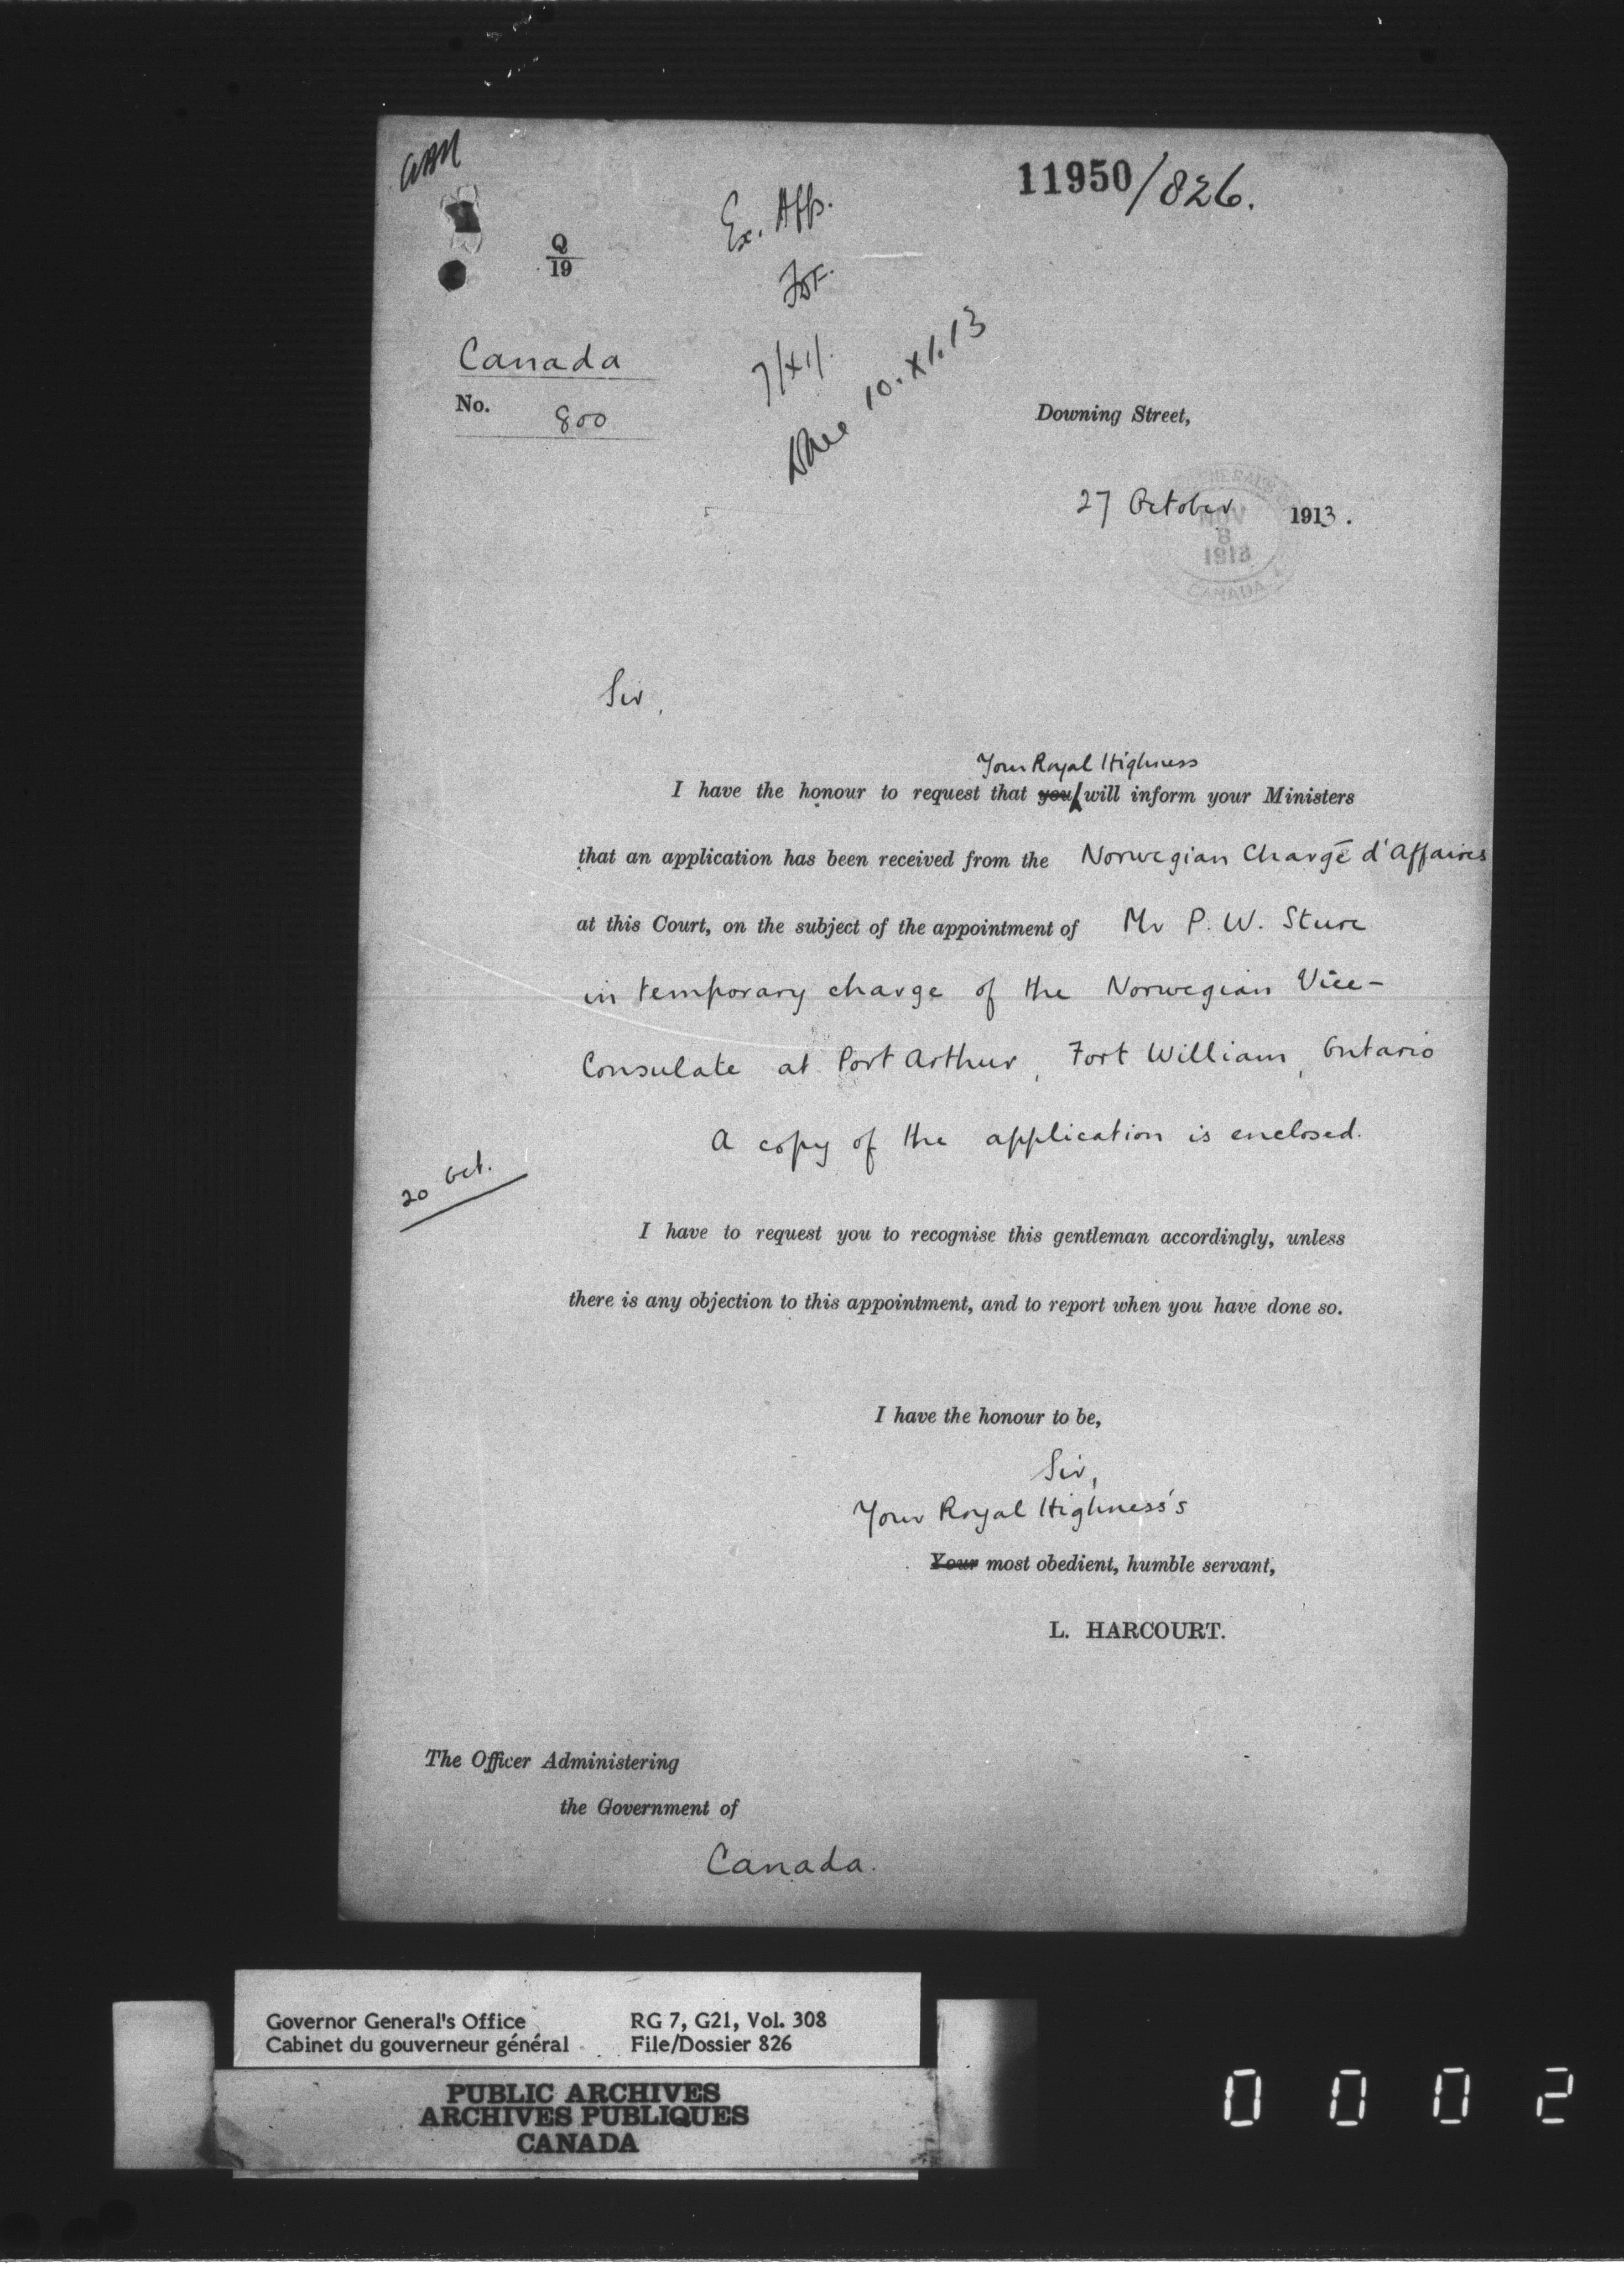 11950/826.
Q
19
Ex. Aff.
7/XI/.
10.XI.13
Canada
No. 800
Downing Street,
27 October 1913.
NOV
8
1913
CANADA
Sir,
Your Royal Highness
I have the honour to request that you will inform your Ministers
that an application has been received from the Norwegian Chargé d'Affaires
at this Court, on the subject of the appointment of Mr P. W. Sture
in temporary charge of the Norwegian Vice-
Consulate at Port Arthur, Fort William, Ontario
A copy of the application is enclosed.
20 Oct.
I have to request you to recognise this gentleman accordingly, unless
there is any objection to this appointment, and to report when you have done so.
I have the honour to be,
Sir,
Your Royal Highness's
Your most obedient, humble servant,
L. HARCOURT.
The Officer Administering
the Government of
Canada.
Governor General's Office RG 7, G21, Vol. 308
Cabinet du gouverneur général File/Dossier 826
PUBLIC ARCHIVES
ARCHIVES PUBLIQUES
CANADA
0002